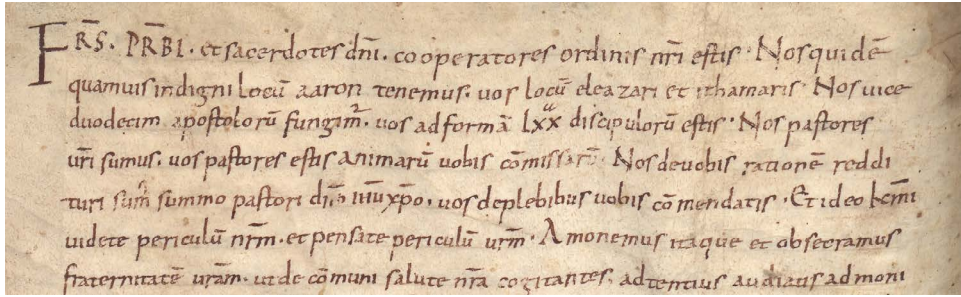 FRS̄. PR̄BI. et sacerdotes dn̄i. cooperatores ordinis nr̄i estis. Nos quidē
quamvis indigni locū aaron tenemus. vos locū eleazari et ithamaris. Nos vice
duodecim apostolorū fungimr̄. vos ad formā lxx discipulorū estis. Nos pastores
vr̄i sumus. vos pastores estis animarū vobis cōmissarū. Nos de vobis rationē reddi
turi sum summo pastori dn̄o ihū xp̄o, vos de plebibus vobis cōmendatis. Et ideo kmī
videte periculū nr̄m. et pensate periculū vr̄m. Amonemus itaque et obsecramus
fraternitatē vrām. ut de cōmuni salute nr̄a cogitantes, adtentius audiatis admoni